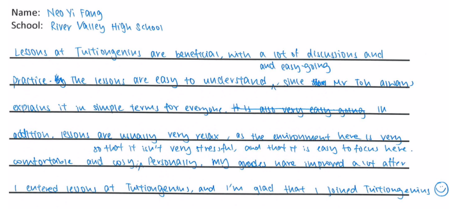 Name: Neo Yi Fang
School: River Valley High School
Lessons at Tuitiongenius are beneficial, with a lot of discussions and
and easy-going
practice. The lessons are easy to understand, since Mr Toh always
explains it in simple terms for everyone. It is also very easy going In
addition, lessons are usually very relax, as the environment here is very
so that it isn't very stressful, and that it is easy to focus here.
comfortable and cosy, Personally, my grades have improved a lot after
I entered lessons at Tuitiongenius, and I'm glad that I joined Tuitiongenius